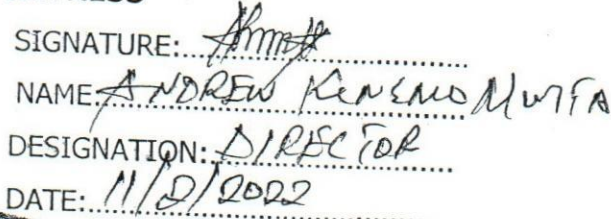 SIGNATURE:
NAME: ANDREW
DESIGNATION: DIRECTOR
DATE: 11/2/2022